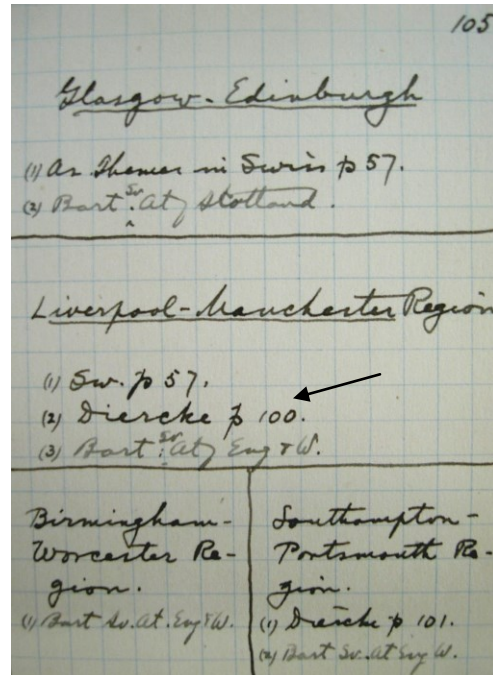 105
Glasgow - Edinburgh
(1) As Thames in Swiss p 57.
(2) Bart. Sv. At of Scotland.
Liverpool - Manchester Region
(1) Sw. p 57.
(2) Diercke p 100.
(3) Bart. Sv. At of Eng & W.
Birmingham -
Worcester Re-
gion.
(1) Bart Sv. At. Eng & W.
Southampton -
Portsmouth Re-
gion.
(1) Diercke p 101.
(2) Bart Sv. At Eng W.